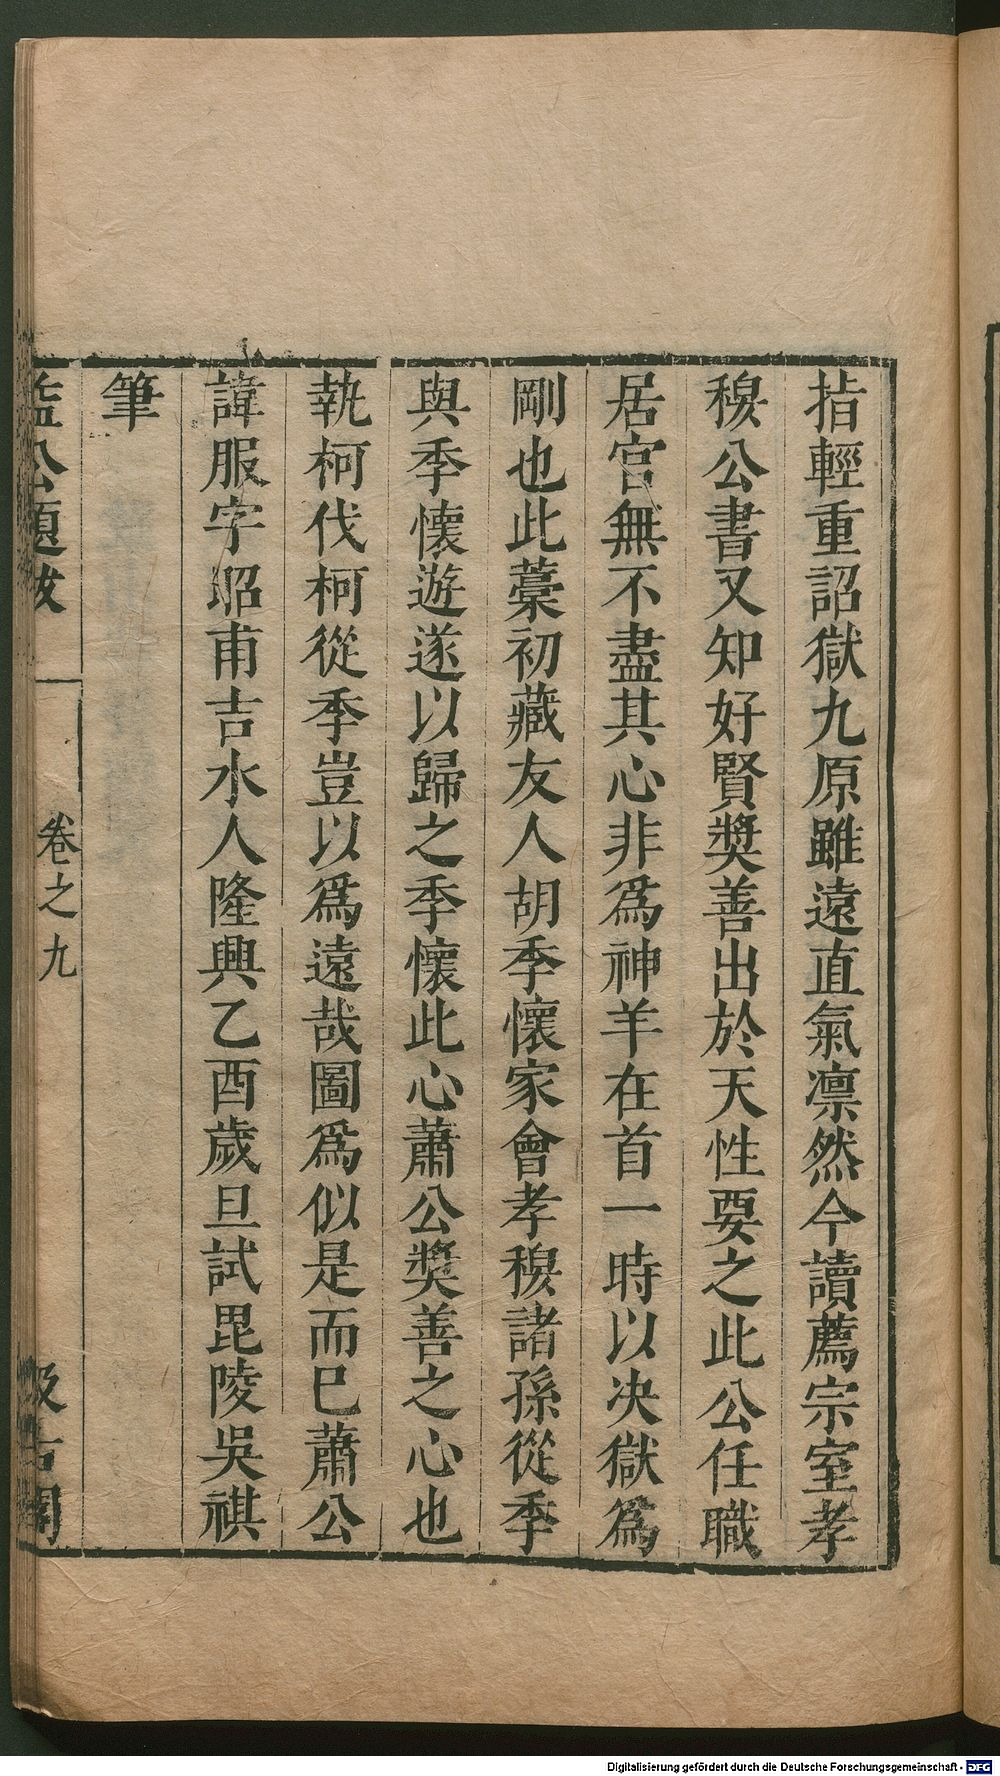 指輕重詔獄九原雖遠直氣凛然今讀薦宗室孝
穆公書又知好賢奬善出於天性要之此公任職
居官無不盡其心非爲神羊在首一時以决獄爲
剛也此藁初藏友人胡季懷家會孝穆諸孫從季
與季懷遊遂以歸之季懷此心蕭公奬善之心也
執柯伐柯從季豈以爲遠哉圖爲似是而巳蕭公
諱服字昭甫吉水人隆興乙酉歲旦試毘陵吳祺
筆
益公題跋
卷之九
汲古閣
Digitalisierung gefördert durch die Deutsche Forschungsgemeinschaft - DFG